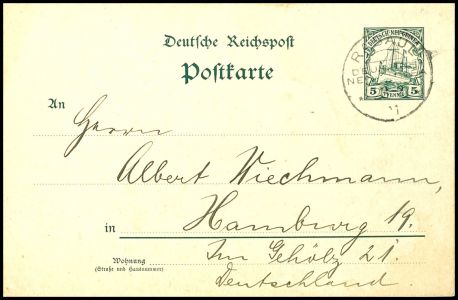 DEUTSCH-NEU-GUINEA
5 PFENNIG 5
RABAUL
Deutsche Reichspost
Postkarte
An
Herrn
Albert Wiechmann,
in Hamburg 19.
Wohnung
(Straße und Hausnummer)
Im Gehölz 21.
Deutschland.